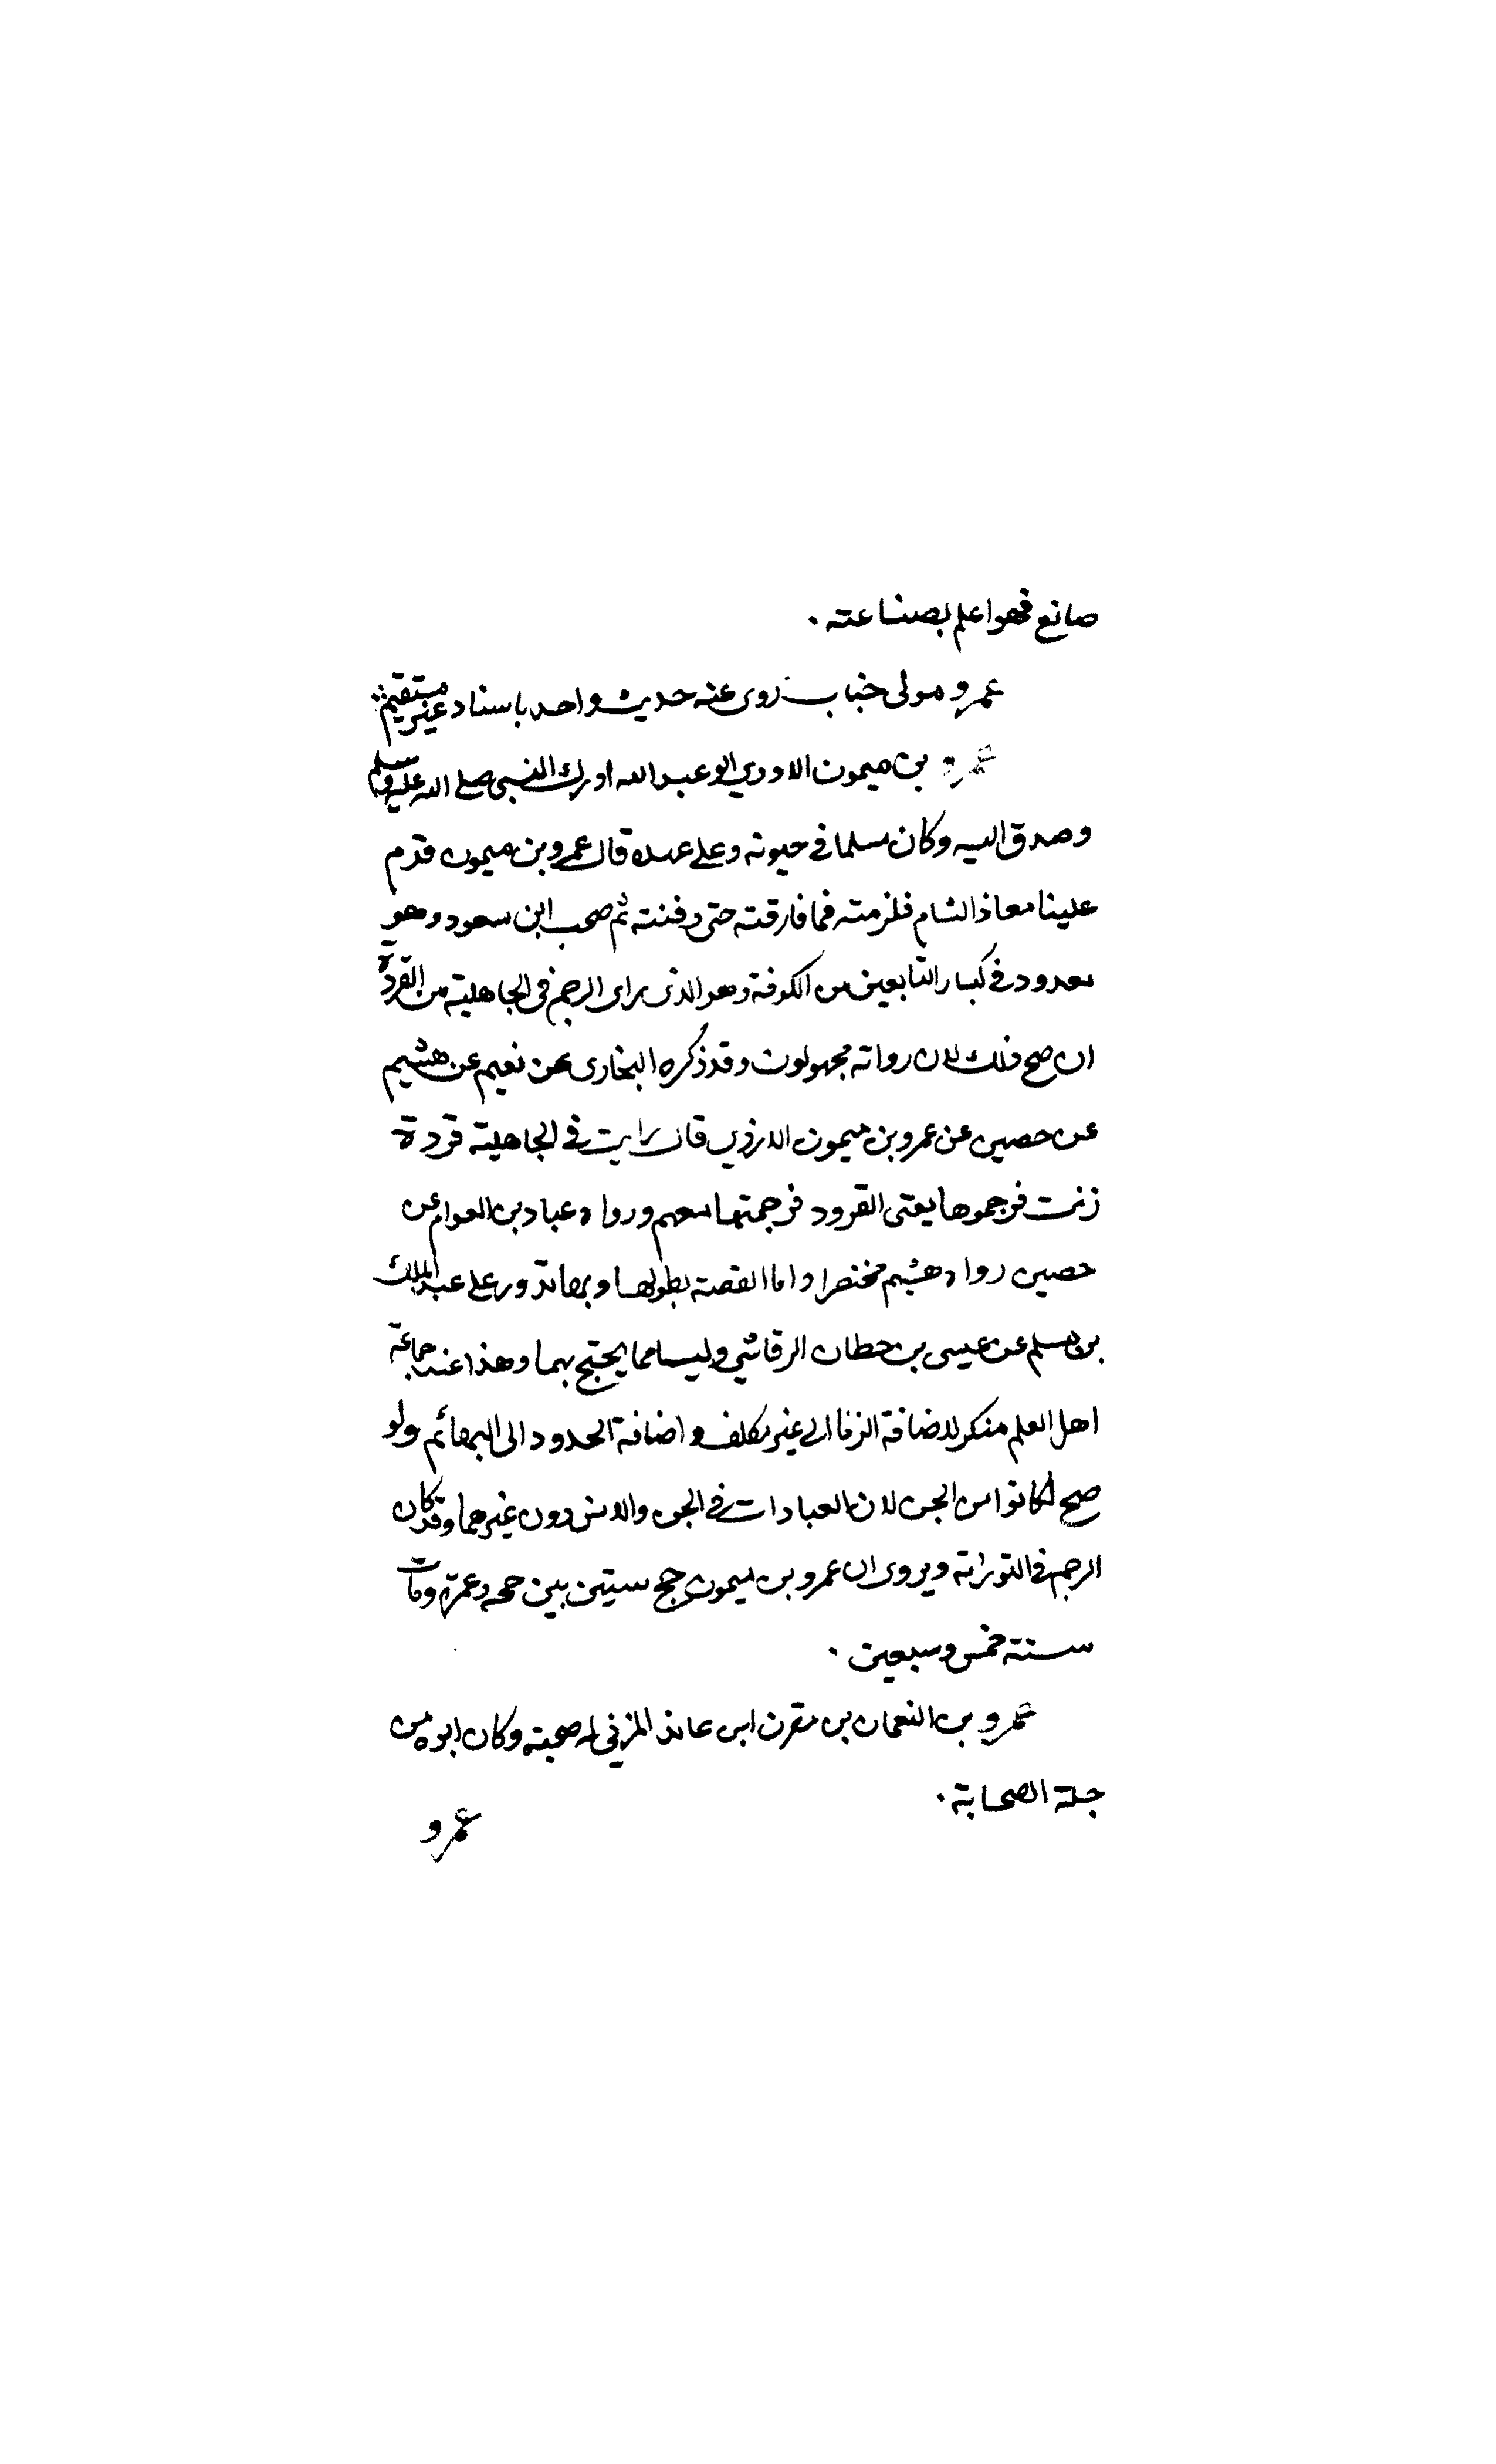 صانع فهو اعلم بصناعته .
عمرو مولى خباب روى عنه حديث واحد باسناد غير مستقيم
عمرو بن ميمون الاودي ابو عبد الله ادرك النبي صلى الله عليه وسلم
وصدق اليه وكان مسلما في حيوته وعلى عهده قال عمرو بن ميمون قدم
علينا معاذ الشام فلزمته فما فارقته حتى دفنته ثم صحب ابن مسعود وهو
معدود في كبار التابعين من الكوفة وهو الذى راى الرجم فى الجاهلية من القردة
ان صح ذلك لان رواته مجهولون وقد ذكره البخارى عن نعيم عن هشيم
عن حصين عن عمرو بن ميمون الازدي قال رايت في الجاهلية قردة
زنت فرجموها يعنى القرود فرجمتها معهم ورواه عباد بن العوام عن
حصين رواه هشيم مختصرا واما القصة بطولها وبها تدور على عبد الملك
بن مسلم عن عيسى بن حطان الرقاشي وليسا مما يحتج بهما وهذا عند جماعة
اهل العلم منكر لاضافة الزنا الى غير مكلف واضافة الحدود الى البهائم ولو
صح لكانوا من الجن لان العبادات في الجن والانس دون غيرهما وقد كان
الرجم في التوراة ويروى ان عمرو بن ميمون حج ستين بين حجه وعمرة ومات
سنة خمس وسبعين .
عمرو بن النعمان بن مقرن ابن عائذ المزني له صحبة وكان ابوه من
جلة الصحابة .
عمرو